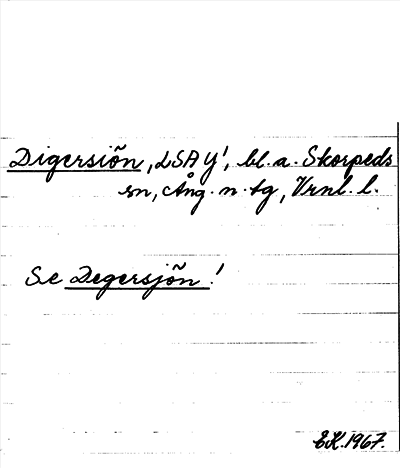 Digersiön, LSA Y', bl. a. Skorpeds
sn, Ång. n. tg, Vrnl. l.
Se Degersjön!
EK. 1967.